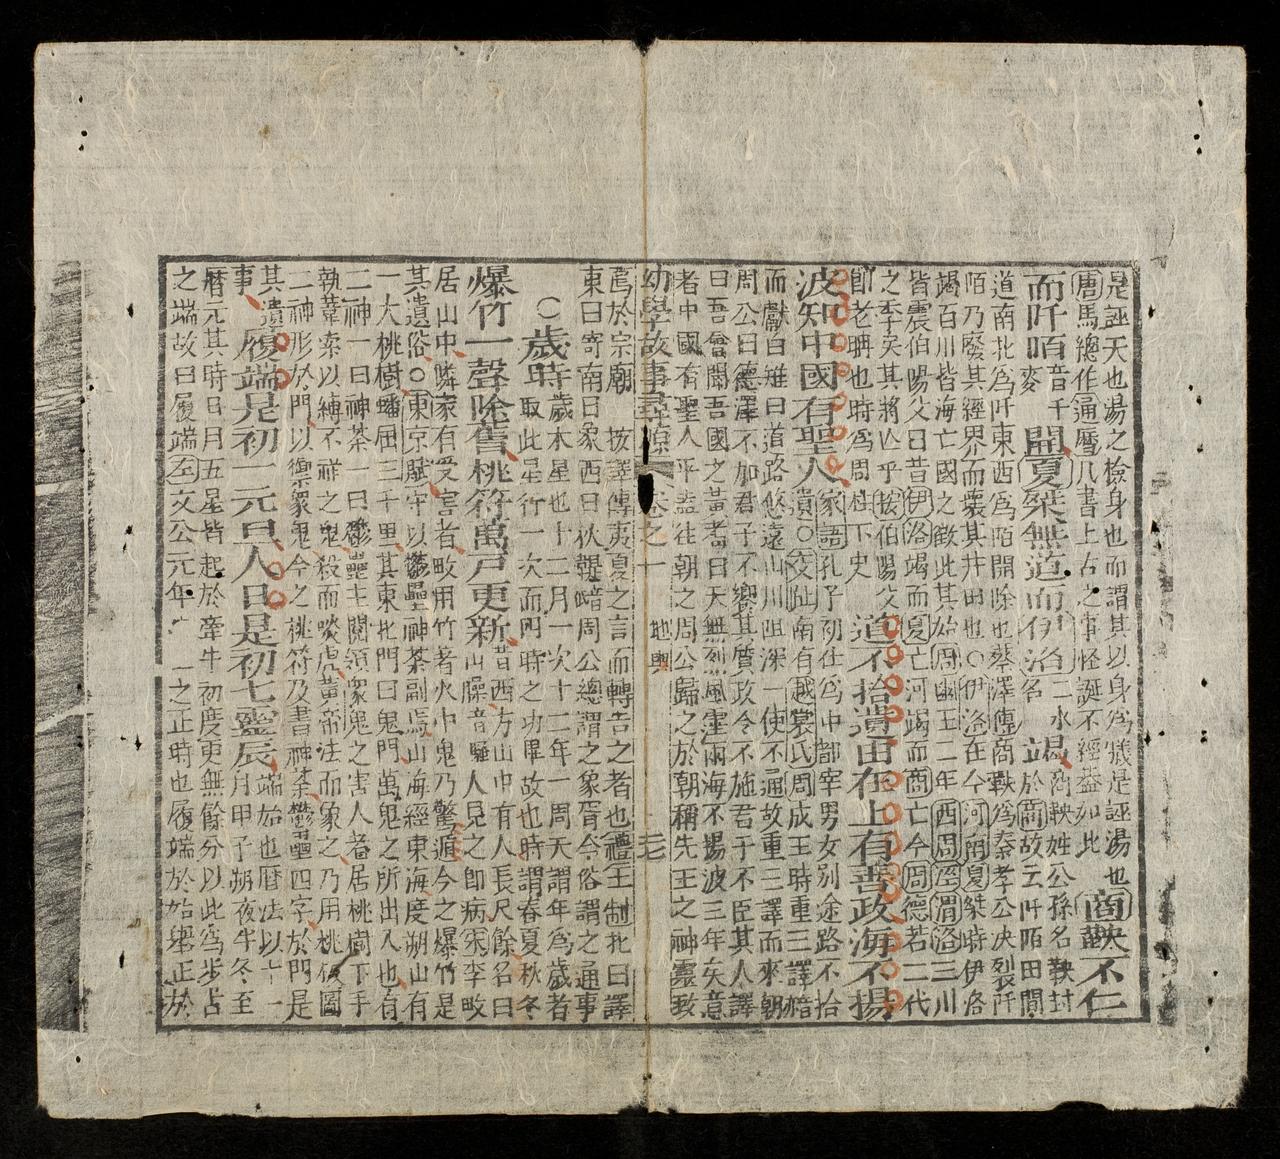 是誣天也湯之檢身也而謂其以身為犧是誣湯也
唐馬總作通曆凡書上古之事怪誕不經蓋如此
商鞅不仁
而阡陌音千麥開夏桀無道而伊洛二水名竭商鞅姓公孫名鞅封
於商故云阡陌田間
道南北為阡東西為陌開除也蔡澤傳商鞅為秦孝公決裂阡
陌乃廢其經界而壞其井田也○伊洛在今河南夏桀時伊洛
竭百川皆海亡國之徵此其始周幽王二年西周涇渭洛三川
皆震伯陽父曰昔伊洛竭而夏亡河竭而商亡今周德若二代
之季矣其將亡乎按伯陽父
即老聃也時為周柱下史
道不拾遺由在上有善政海不揚
波知中國有聖人家語孔子初仕為中都宰男女別途路不拾
遺○交趾南有越裳氏周成王時重三譯
而獻白雉曰道路悠遠山川阻深一使不通故重三譯而來朝
周公曰德澤不加君子不饗其質政令不施君子不臣其人譯
曰吾曾聞吾國之黃耇曰天無烈風霪雨海不揚波三年矣意
者中國有聖人乎盍往朝之周公歸之於朝稱先王之神靈致
幼學故事尋源 卷之一 地輿 三七
焉於宗廟 按譯傳夷夏之言而轉告之者也禮王制北曰譯
東曰寄南曰象西曰狄鞮 周公總謂之象胥今俗謂之通事
○歲時歲木星也十二月一次十二年一周天謂年為歲者
取此星行一次而四時之功畢故也時謂春夏秋冬
爆竹一聲除舊桃符萬戶更新昔西方山中有人長尺餘名曰
山臊音騷人見之即病寒李畋
居山中隣家有受害者畋用竹著火中鬼乃驚遁今之爆竹是
其遺俗○東京賦守以鬱壘神荼副焉山海經東海度朔山有
一大桃樹蟠屈三千里其東北門曰鬼門萬鬼之所出入也有
二神一曰神荼一曰鬱壘主閱領眾鬼之害人者居桃樹下手
執葦索以縛不祥之鬼殺而啖虎黃帝法而象之乃用桃板圖
二神形於門以禦眾鬼今之桃符及書神荼鬱壘四字於門是
其遺
事
履端是初一元旦人日是初七靈辰端始也曆法以十一
月甲子朔夜半冬至
曆元其時日月五星皆起於牽牛初度更無餘分以此為步占
之端故曰履端左文公元年 之正時也履端於始舉正於